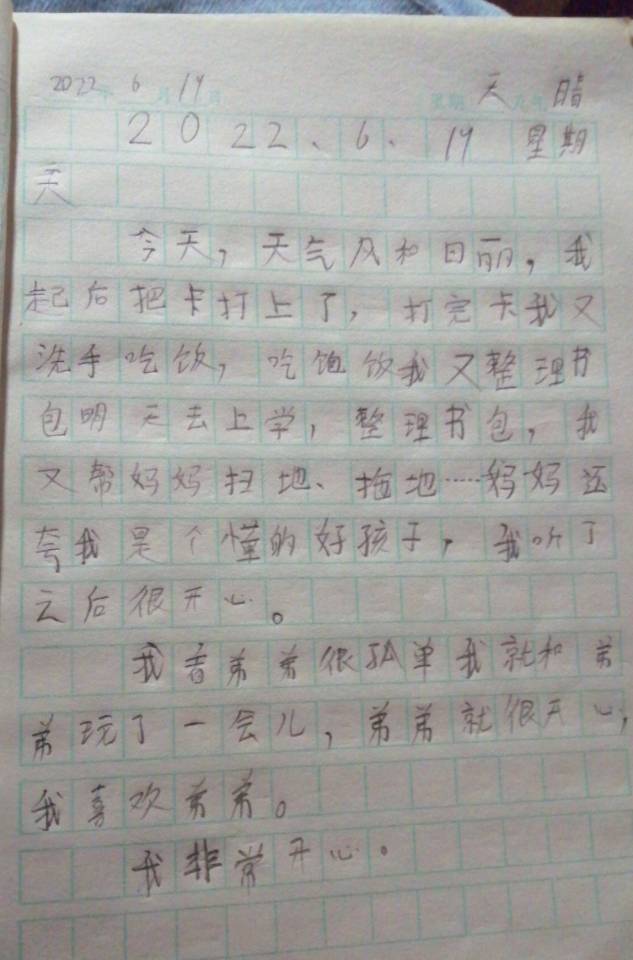 2022年6月19日 星期天 天气晴
2022、6、19 星期
天
今天，天气风和日丽，我
起后把卡打上了，打完卡我又
洗手吃饭，吃饱饭我又整理书
包明天去上学，整理书包，我
又帮妈妈扫地、拖地……妈妈还
夸我是个懂的好孩子，我听了
云后很开心。
我看弟弟很孤单我就和弟
弟玩了一会儿，弟弟就很开心，
我喜欢弟弟。
我非常开心。